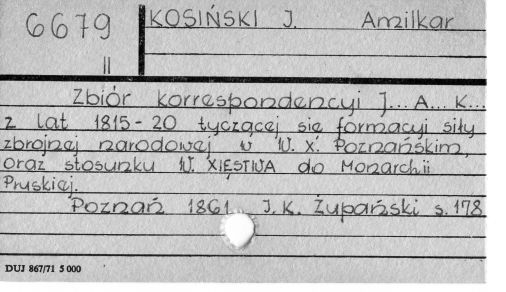 6679
II
KOSIŃSKI J. Amilkar
Zbiór korrespondencyi J... A... K...
z lat 1815-20 tyczącej się formacyi siły
zbrojnej narodowej w W. X. Poznańskim,
oraz stosunku W. XIĘSTWA do Monarchii
Pruskiej.
Poznań 1861. J. K. Żupański s. 178
DUJ 867/71 5 000